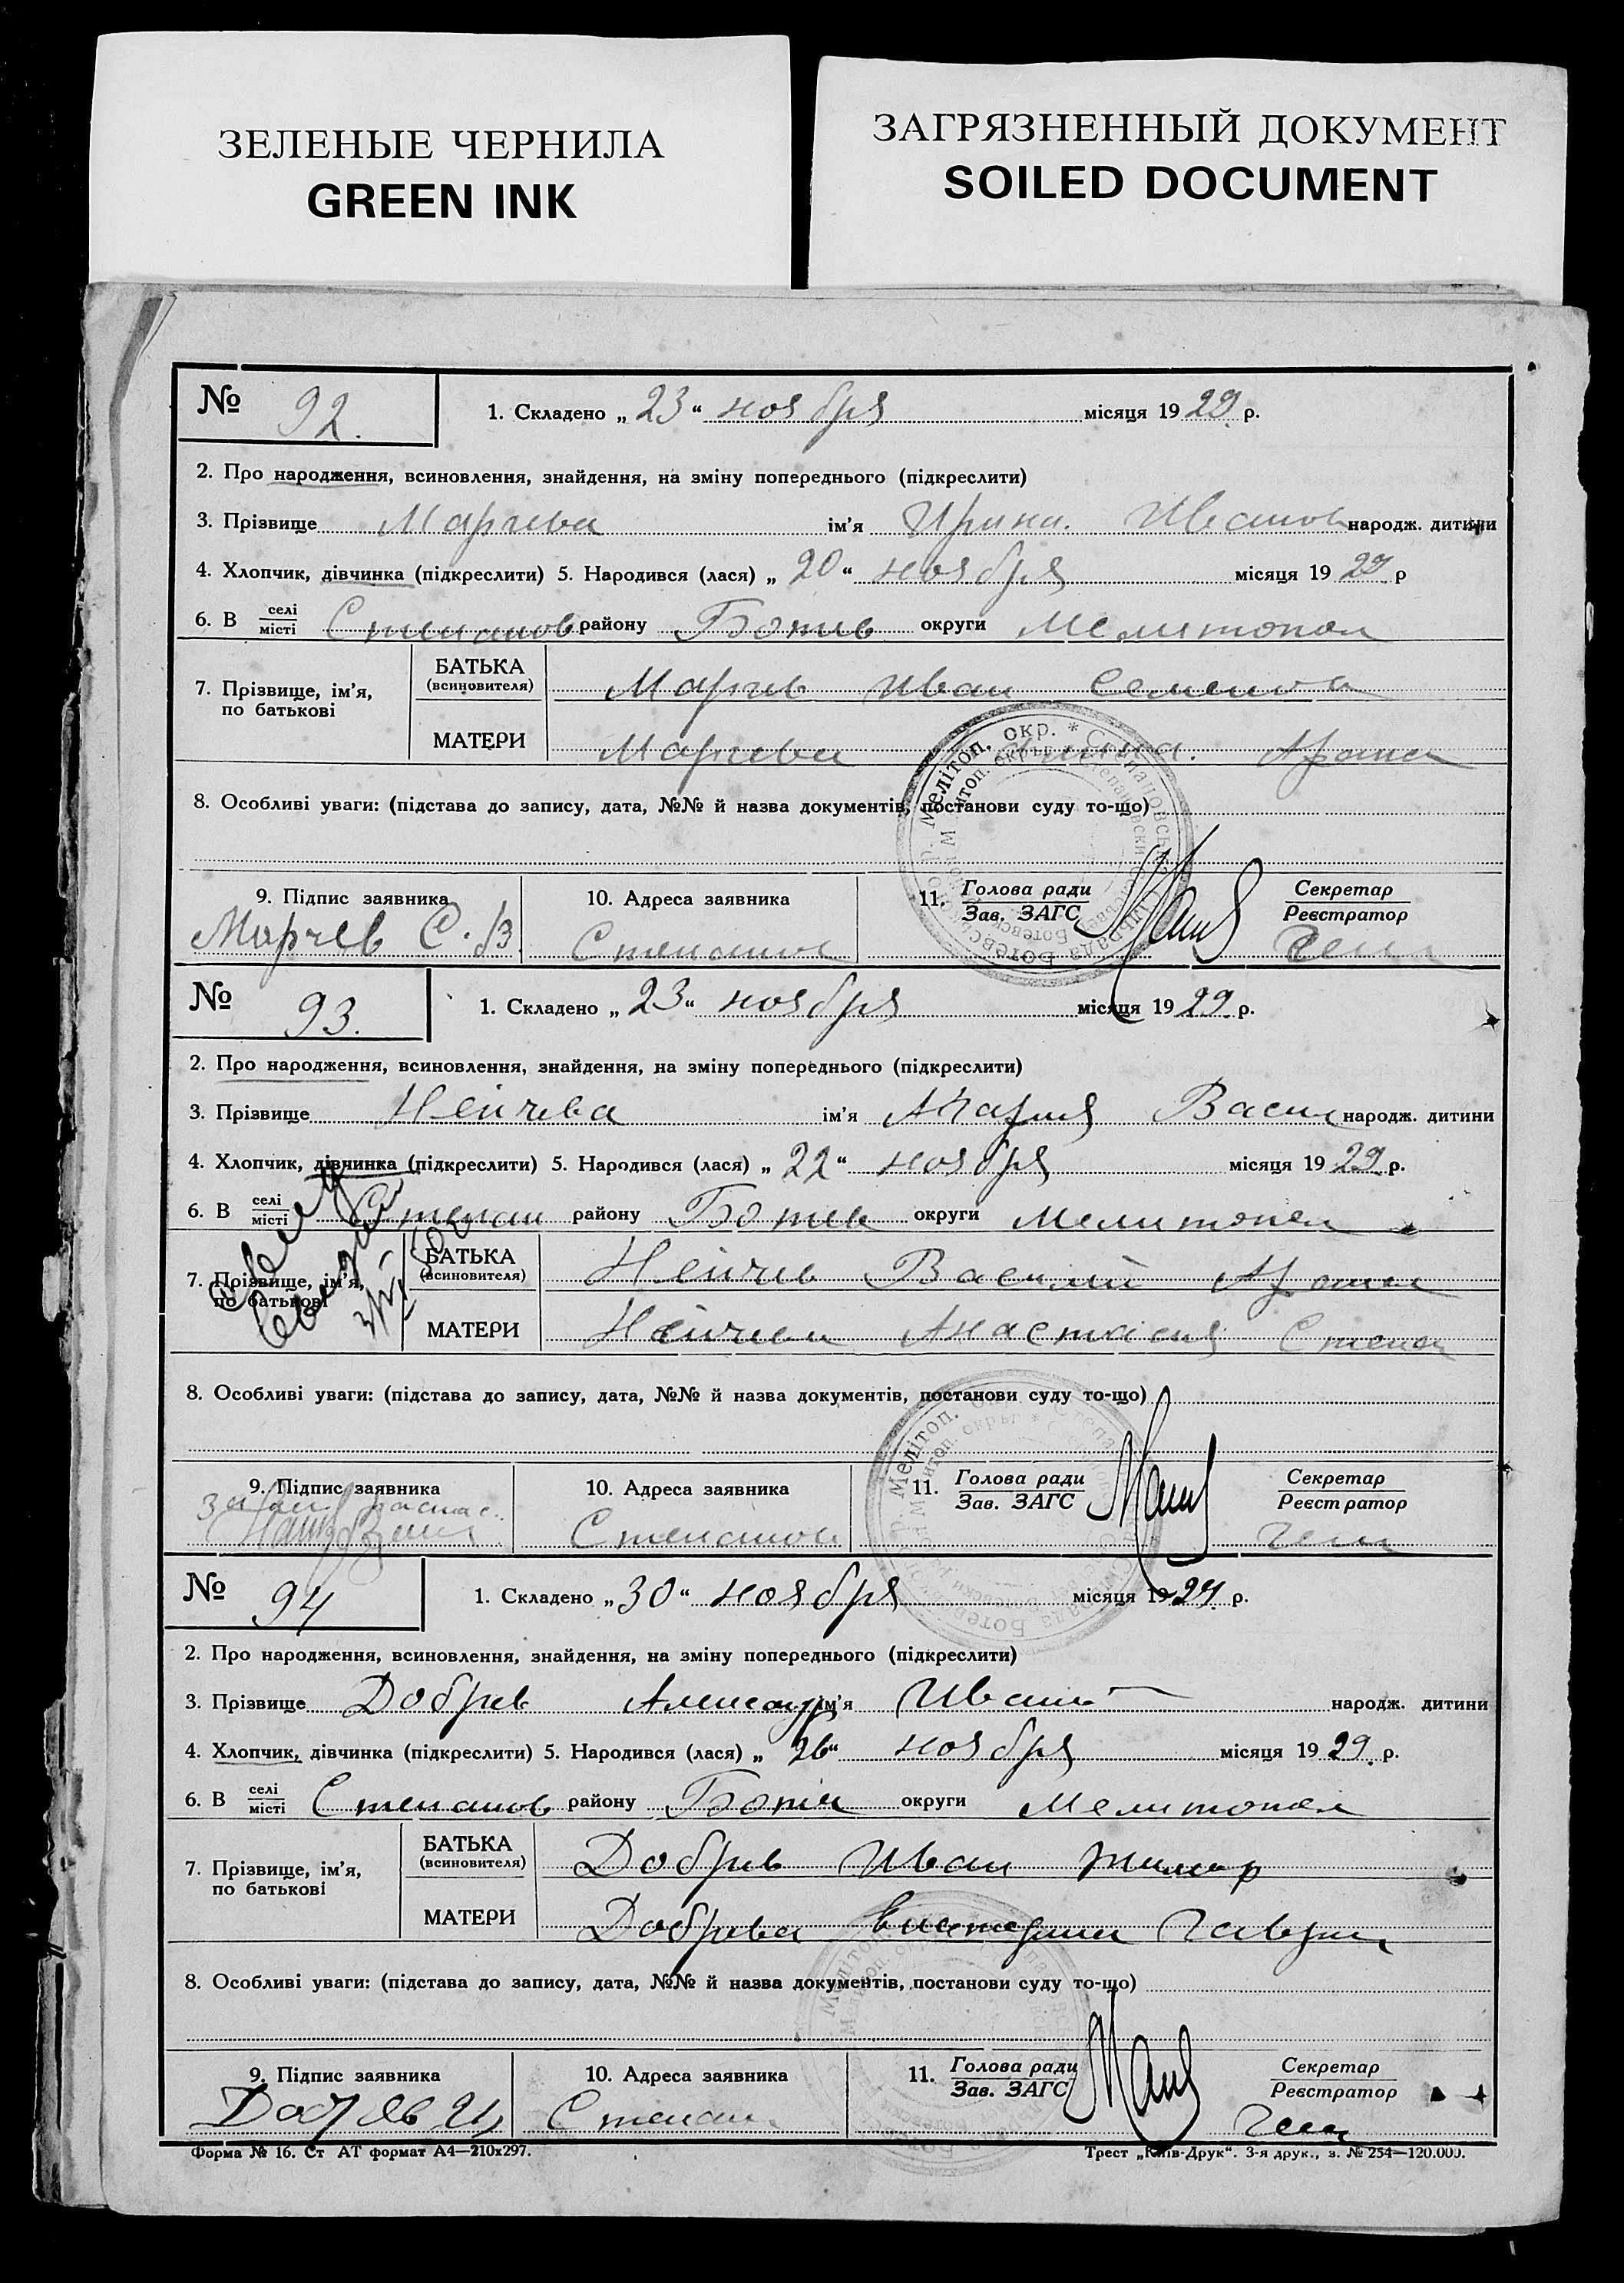 ЗЕЛЕНЫЕ ЧЕРНИЛА
GREEN INK
ЗАГРЯЗНЕННЫЙ ДОКУМЕНТ
SOILED DOCUMENT
№ 92.
1. Складено „23“ ноября місяця 1929 р.
2. Про народження, всиновлення, знайдення, на зміну попереднього (підкреслити)
3. Прізвище Марчева ім'я Ирина. Иванов народж. дитини
4. Хлопчик, дівчинка (підкреслити) 5. Народився (лася) „20“ ноября місяця 1929 р
6. В селі/місті Степанов району Ботев округи Мелитопол
7. Прізвище, ім'я, по батькові
БАТЬКА (всиновителя) Марчев Иван Семенов
МАТЕРИ Марчева
8. Особливі уваги: (підстава до запису, дата, №№ й назва документів, постанови суду то-що)
9. Підпис заявника Марчев
10. Адреса заявника Степанов
11. Голова ради/Зав. ЗАГС
Секретар/Реєстратор
№ 93.
1. Складено „23“ ноября місяця 1929 р.
2. Про народження, всиновлення, знайдення, на зміну попереднього (підкреслити)
3. Прізвище Нейчева ім'я Мария Васил народж. дитини
4. Хлопчик, дівчинка (підкреслити) 5. Народився (лася) „22“ ноября місяця 1929 р.
6. В селі/місті Степан району Ботев округи Мелитопол
7. Прізвище, ім'я, по батькові
БАТЬКА (всиновителя) Нейчев Василий
МАТЕРИ Нейчева Анастасия Степан
8. Особливі уваги: (підстава до запису, дата, №№ й назва документів, постанови суду то-що)
9. Підпис заявника
10. Адреса заявника Степанов
11. Голова ради/Зав. ЗАГС
Секретар/Реєстратор
№ 94
1. Складено „30“ ноября місяця 1929 р.
2. Про народження, всиновлення, знайдення, на зміну попереднього (підкреслити)
3. Прізвище Добрев Александр ім'я Иван народж. дитини
4. Хлопчик, дівчинка (підкреслити) 5. Народився (лася) „26“ ноября місяця 1929. р.
6. В селі/місті Степанов району Ботев округи Мелитопол
7. Прізвище, ім'я, по батькові
БАТЬКА (всиновителя) Добрев Иван
МАТЕРИ Добрева Екатерина Гаврил
8. Особливі уваги: (підстава до запису, дата, №№ й назва документів, постанови суду то-що)
9. Підпис заявника
10. Адреса заявника Степан
11. Голова ради/Зав. ЗАГС
Секретар/Реєстратор
Форма № 16. Ст АТ формат А4—210х297.
Трест „Київ-Друк“. 3-я друк., з. № 254—120.000.